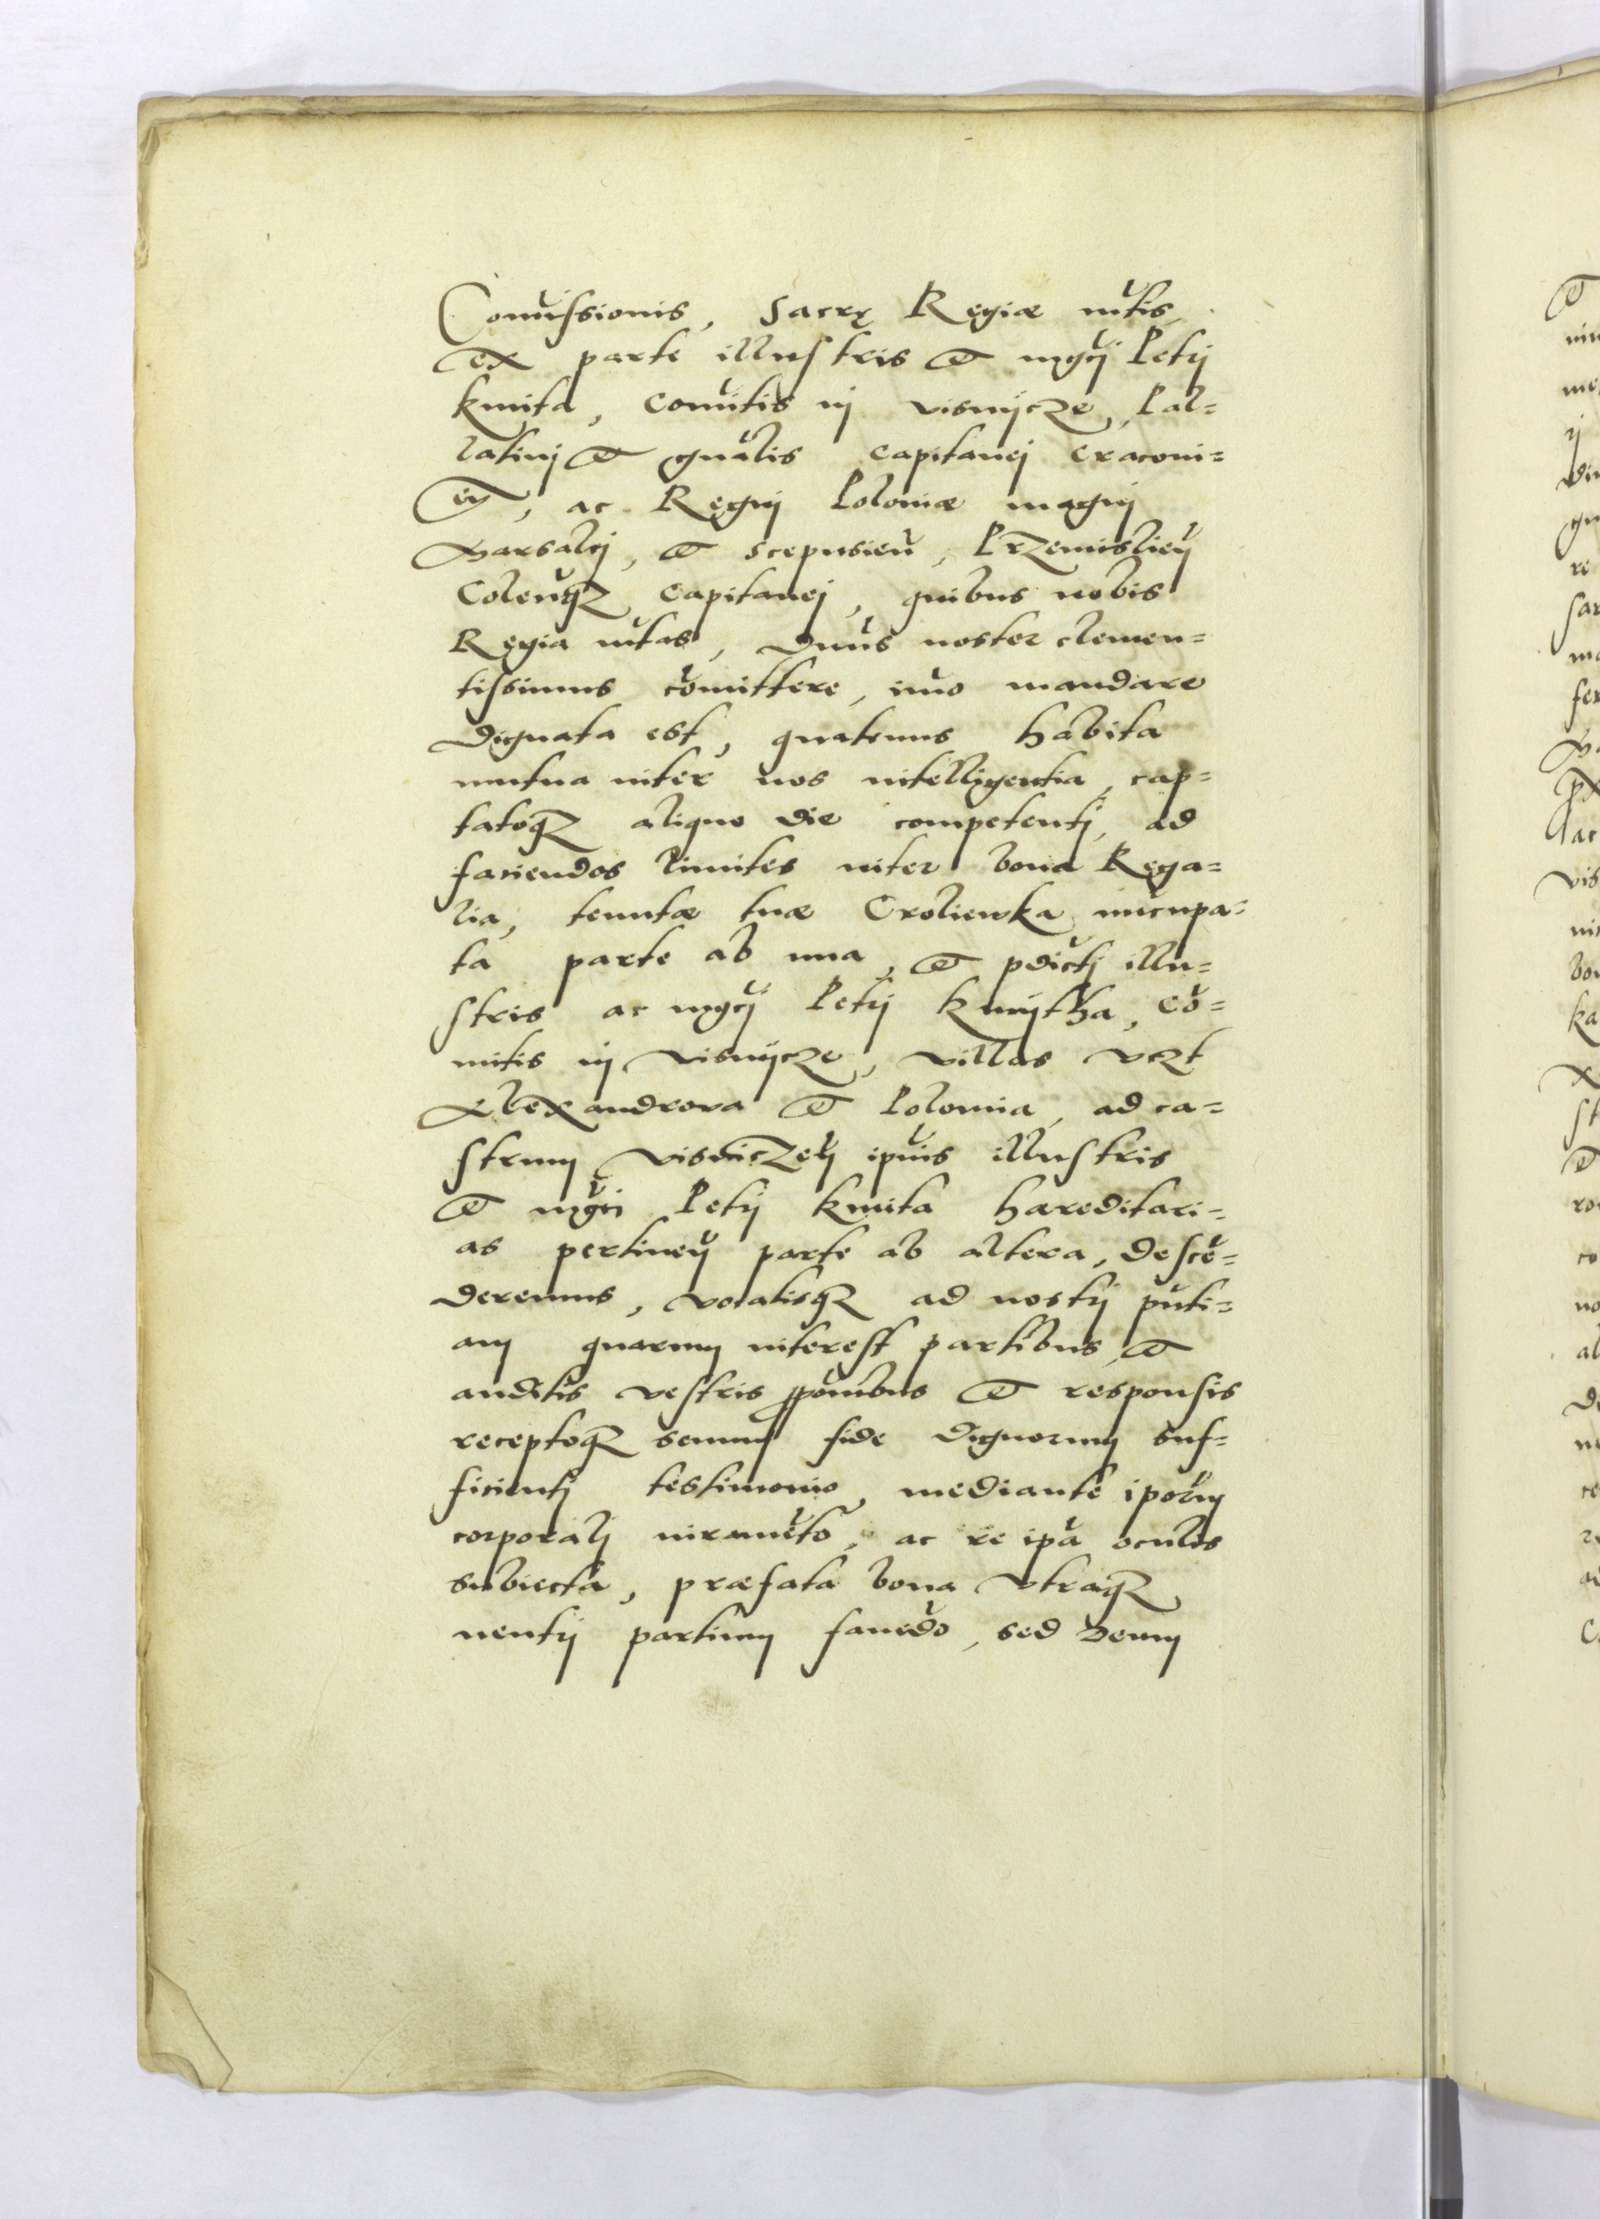 Comissionis, Sacrę Regiæ mtis,
ex parte illustris et mgcj Petrj
kmita, Comitis in visnijcze, Pal=
latinj et gnalis capitanej cracovi=
en, ac Regnj Poloniæ magnj
Marsalcj, et scepusien, Przemislien
Colenqz capitanej, quibus nobis
Regia mtas, Dnus noster clemen=
tissimus comittere, imo mandare
dignata est, quatenus habita
mutua inter nos intelligentia, cap=
tatoqz aliquo die competentj, ad
faciendos limites inter bona Rega=
lia, tenutæ tuæ Croliewka nucupa=
ta parte ab una, et pdictj illu=
stris ac mgcj Petrj kmijtha, co=
mitis in visnijcze, villas vczt
Alexandrova et Polomia, ad ca=
strum visniczen ipius illustris
et mgci Petrj kmita hæreditari=
as pertinen parte ab altera, desce=
deremus, vocatisqz ad nostrj pnti=
am quarum interest partibus, et
auditis vestris pponibus et responsis
receptoqz senum fide dignorum suf=
ficientj testimonio, mediante iporum
corporalj iurameto, ac re ipa oculis
subiecta, præfata bona vtraqz
neutrj partium favedo, sed Deum